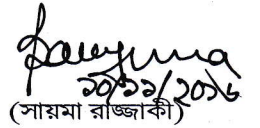 ১০/১১/২০১৬
(সায়মা রাজ্জাকী)